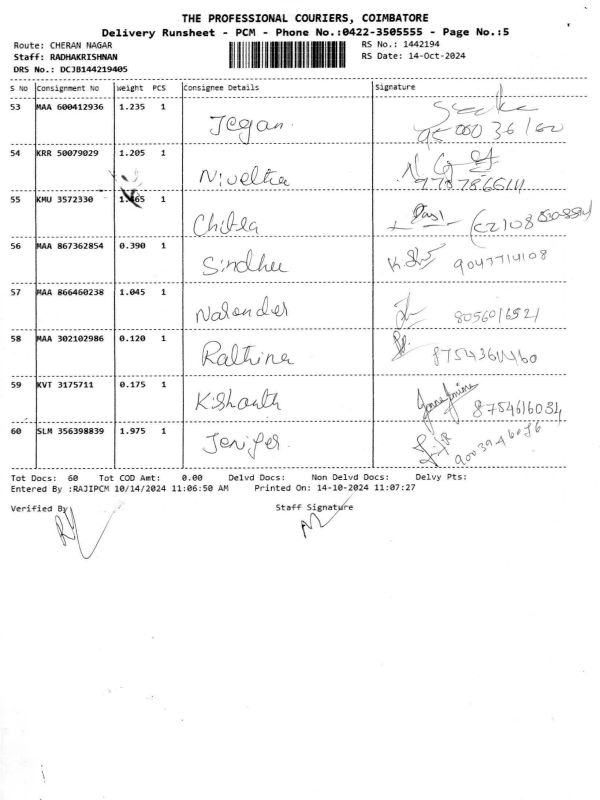 THE PROFESSIONAL COURIERS, COIMBATORE
Delivery Runsheet - PCM - Phone No.:0422-3505555 - Page No.:5
Route: CHERAN NAGAR RS No.: 1442194
Staff: RADHAKRISHNAN RS Date: 14-Oct-2024
DRS No.: DCJB144219405
S No Consignment No Weight PCS Consignee Details Signature
53 MAA 600412936 1.235 1 Jegan.
54 KRR 50079029 1.205 1 Niveltha
55 KMU 3572330 1.465 1 Chitra
56 MAA 867362854 0.390 1 Sindhu 9047714108
57 MAA 866460238 1.045 1 Narender 8056016521
58 MAA 302102986 0.120 1 Rathina
59 KVT 3175711 0.175 1 Kishanth 8754616034
60 SLM 356398839 1.975 1 Jenifer.
Tot Docs: 60 Tot COD Amt: 0.00 Delvd Docs: Non Delvd Docs: Delvy Pts:
Entered By :RAJIPCM 10/14/2024 11:06:50 AM Printed On: 14-10-2024 11:07:27
Verified By Staff Signature